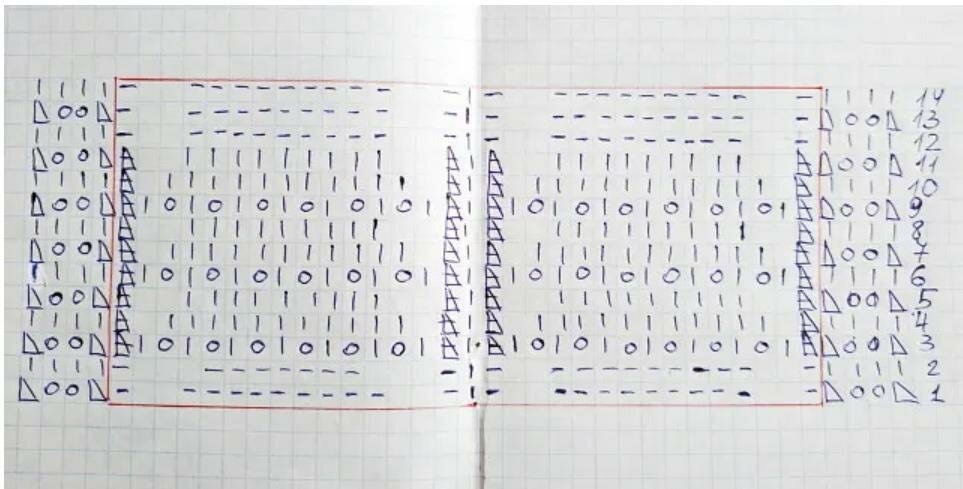 14
13
12
11
10
9
8
7
6
5
4
3
2
1